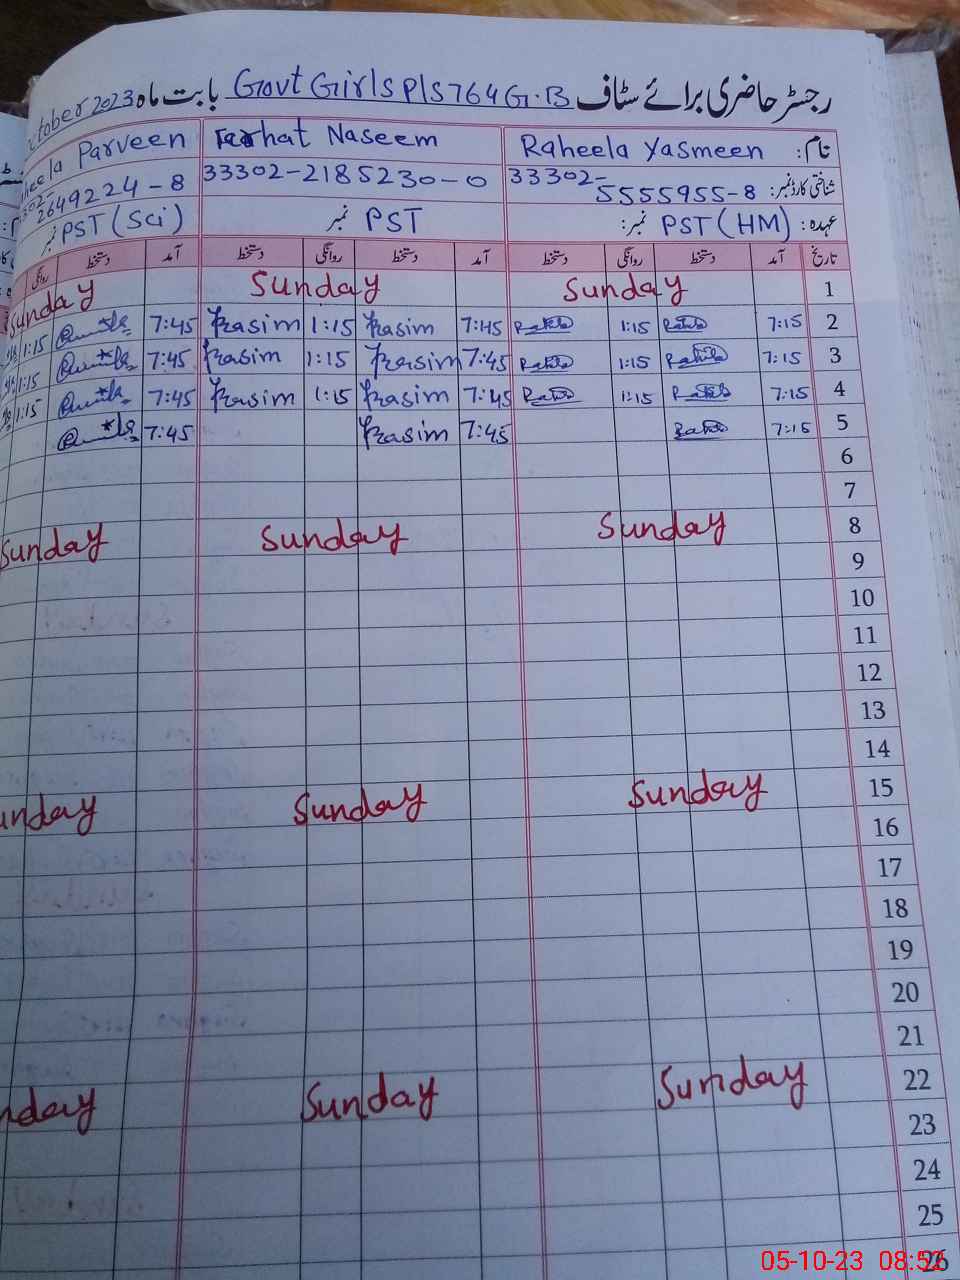 رجسٹر حاضری برائے سٹاف Govt Girls P/S 764 G.B بابت ماہ October 2023
نام: Raheela Yasmeen Farhat Naseem Parveen
شناختی کارڈ نمبر: 33302-5555955-8 33302-2185230-0 2649224-8
عہدہ: PST (HM) نمبر: PST نمبر PST (Sci) نمبر
تاریخ آمد دستخط روانگی دستخط آمد دستخط روانگی دستخط آمد دستخط روانگی
1 Sunday Sunday Sunday
2 7:15 1:15 7:45 1:15 7:45 1:15
3 7:15 1:15 7:45 1:15 7:45 1:15
4 7:15 1:15 7:45 1:15 7:45 1:15
5 7:15 7:45 7:45
6
7
8 Sunday Sunday Sunday
9
10
11
12
13
14
15 Sunday Sunday unday
16
17
18
19
20
21
22 Sunday Sunday day
23
24
25
26
05-10-23 08:52